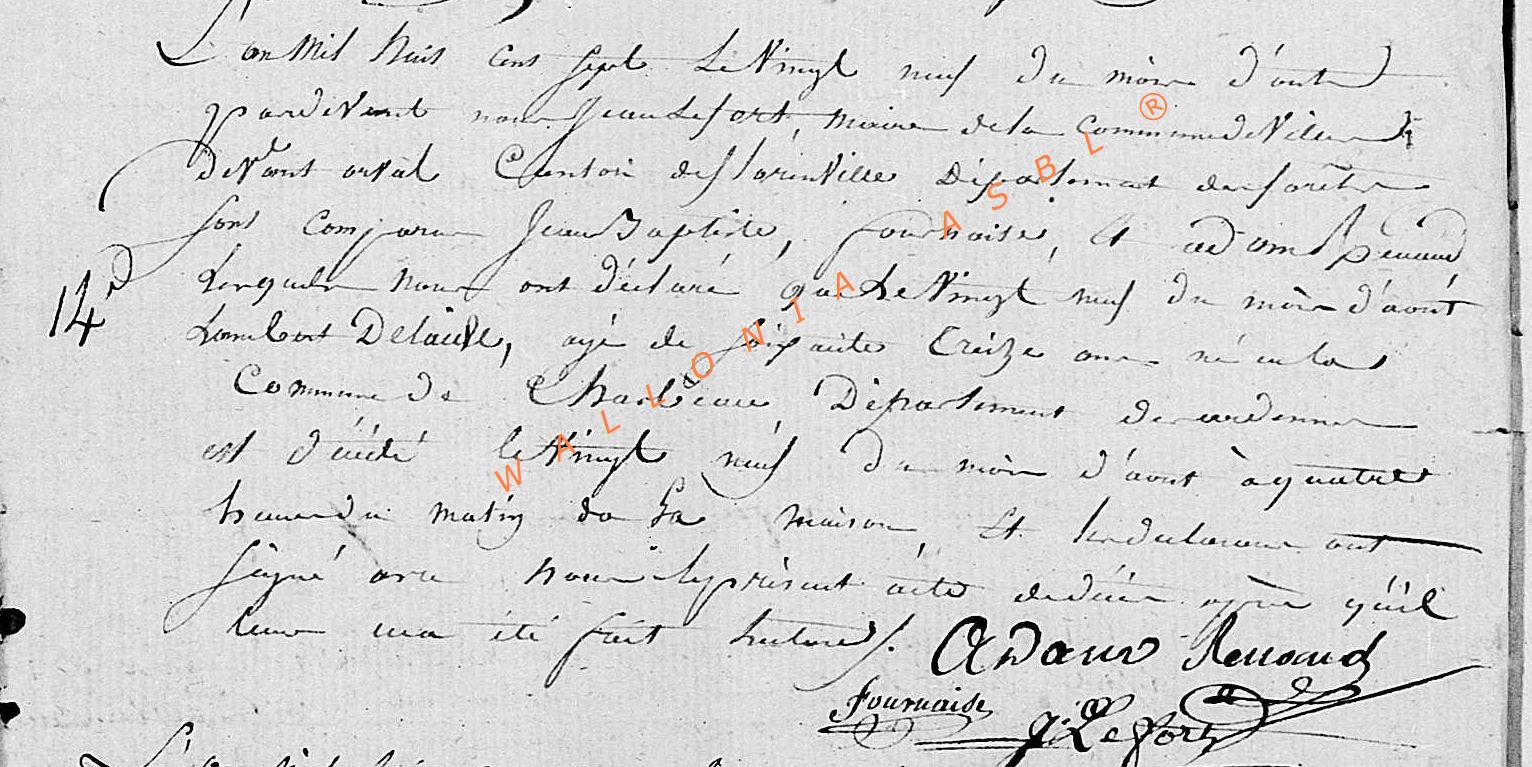 L'an Mil huit cent Sept Le Vingt neuf du mois d'aout
pardevant nous Jean Lefort, maire de la Commune de Villers
devant orval Canton de florenville Département des forêts
sont comparu Jean Baptiste, fournaise, et adam Renaud
Lesquels nous ont déclaré que Le Vingt neuf du mois d'avout
14e
Lambert Delaive, agé de soixante treize ans né en la
Commune de Charbeaux Département des ardennes
est décédé le Vingt neuf du mois d'aout à quatre
heures du matin de sa maison, et les declarans ont
signé avec nous le présent acte de décès après qu'il
leur en a été fait lecture.
Adam Renaud
Fournaise
J: Lefort
WALLONIA ASBL ®